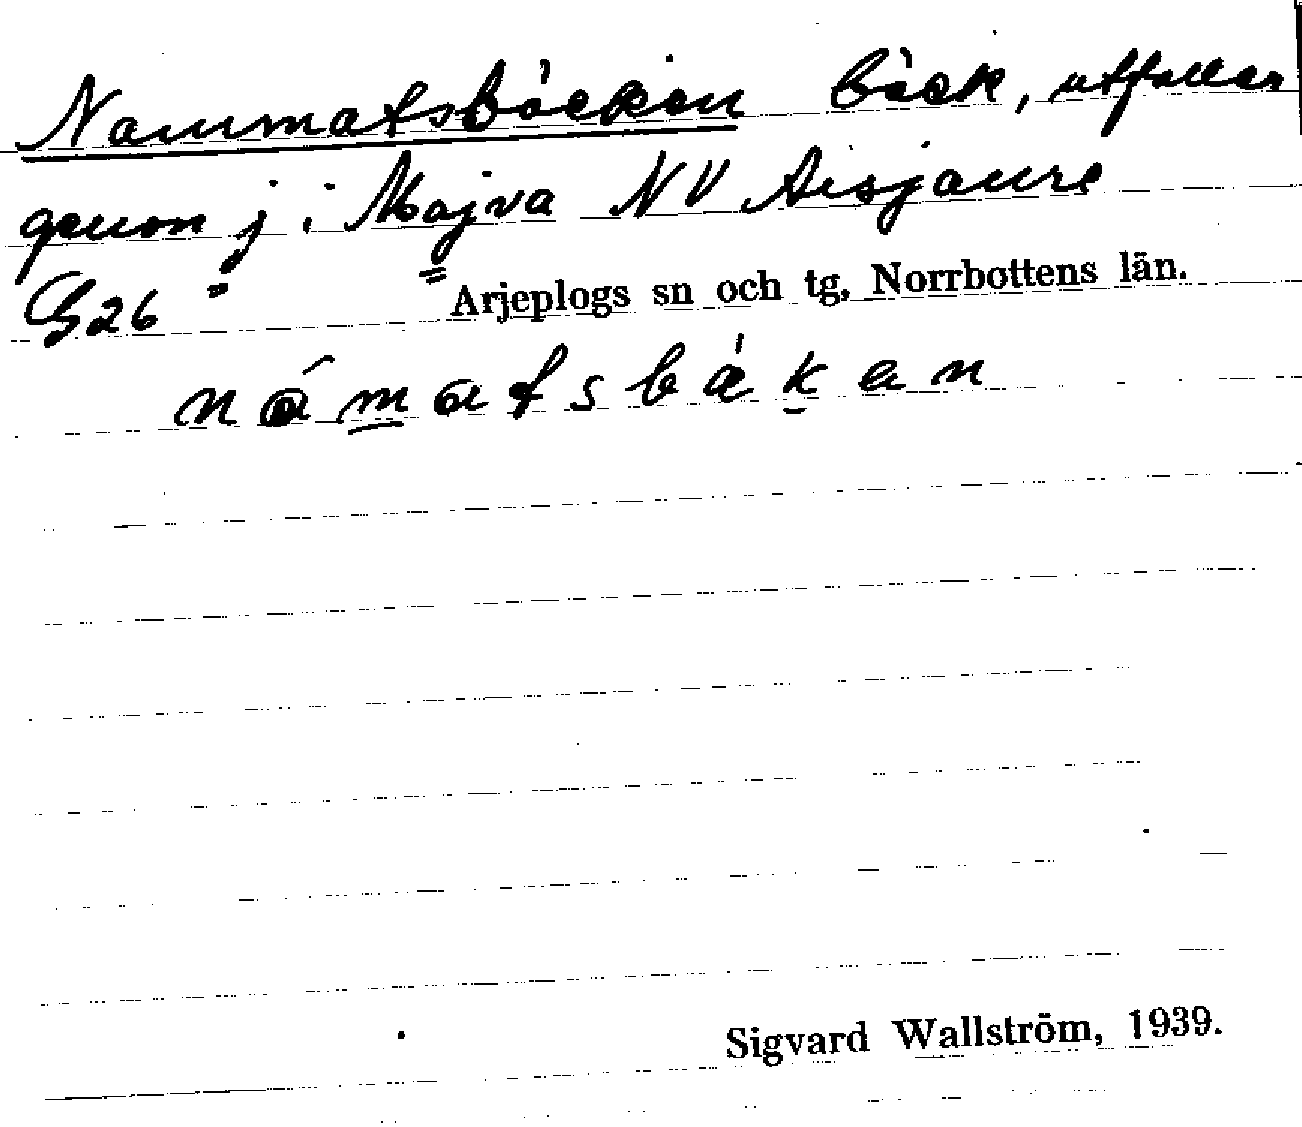 Nammatsbäcken bäck, utfaller
genom j i Majva NV Aisjaure
G26 " " Arjeplogs sn och tg, Norrbottens län.
námatsbäken
Sigvard Wallström, 1939.